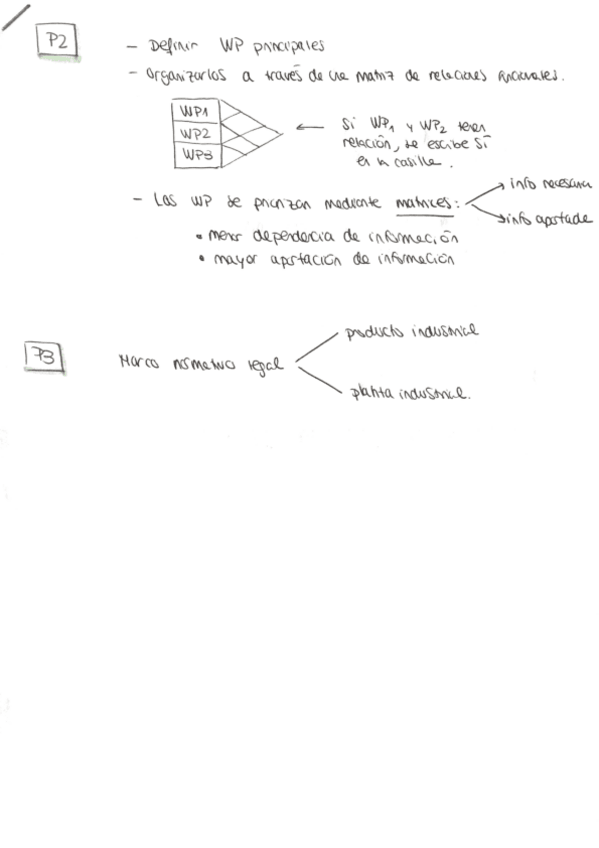 P2
- Definir WP principales
- Organizarlos a través de una matriz de relaciones funcionales.
WP1
WP2
WP3
← Si WP1 y WP2 tienen
relación, se escribe Sí
en la casilla.
- Los WP se priorizan mediante matrices: → info necesaria
→ info aportada
• menor dependencia de información
• mayor aportación de información
P3
Marco normativo legal
producto industrial
planta industrial.